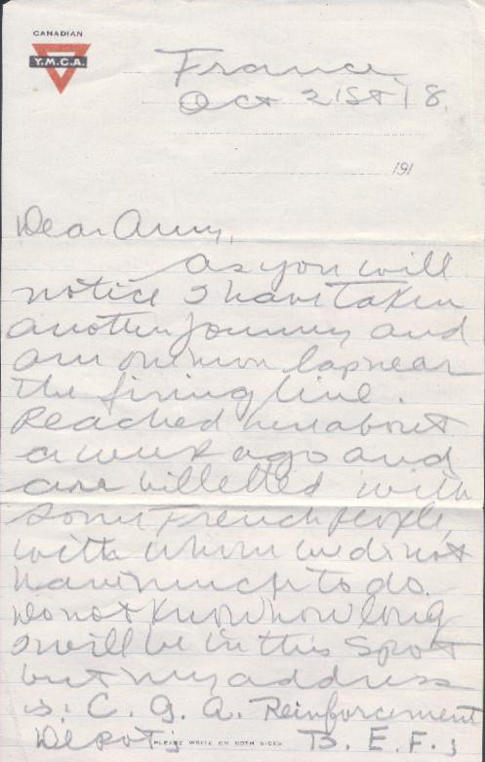 CANADIAN
Y.M.C.A.
France.
Oct 21st 18.
191
Dear Amy,
As you will
notice I have taken
another journey and
am one more lap near
the firing line.
Reached here about
a week ago and
are billetted with
some French people,
with whom we do not
have much to do.
Do not know how long
I will be in this spot
but my address
is: C. G. A. Reinforcement
Depot; B. E. F.;
PLEASE WRITE ON BOTH SIDES